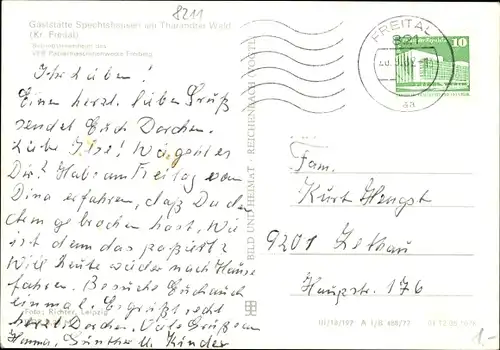 8211
Gaststätte Spechtshausen im Tharandter Wald
(Kr. Freital)
Betriebsferienheim des
VEB Papiermaschinenwerke Freiberg
FREITAL
821
10
aa
Ihr Lieben!
Einen herzl. lieben Gruß
sendet Euch Dorchen.
Liebe Ilse! Wie geht es
Dir? Hab am Freitag von
Dina erfahren, daß Du den
Arm gebrochen hast. Wie
ist denn das passiert?
Will heute wieder nach Hause
fahren. Besuche Euch auch
einmal. Es grüßt recht
herzl. Dorchen. Viele Grüße von
Hanna, Günther u. Kinder
Foto: Richter, Leipzig
BILD UND HEIMAT · REICHENBACH (VOGTL)
Fam.
Kurt Hengst
9201 Zethau
Hauptstr. 176
III/18/197 A 1/B 488/77
1.-